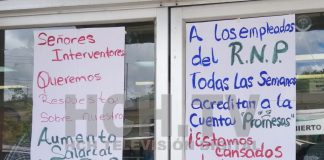 Señores
Interventores
Queremos
Respuesta
Sobre nuestro
Aumento
Salarial
A los empleados
del R.N.P
Todas las Semanas
acreditan a la
Cuenta "Promesas"
¡Estamos
cansados
HCH TV
TELEVISIÓN
IERTO